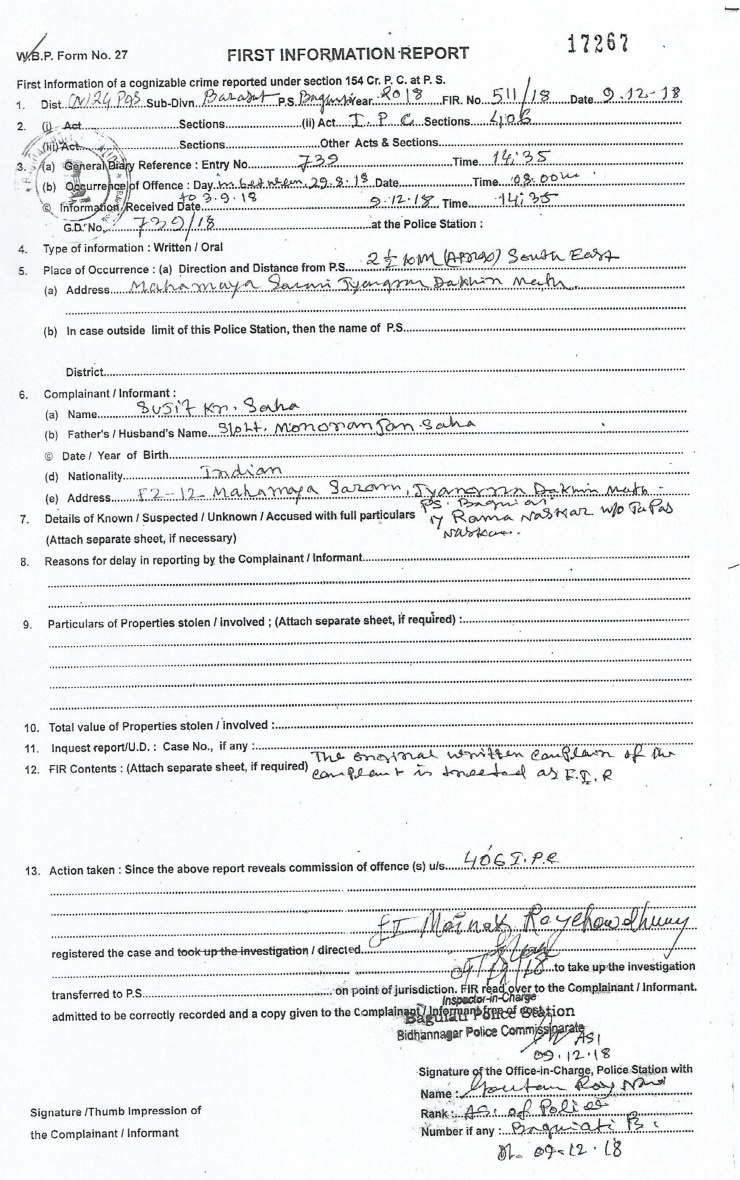 17267
W.B.P. Form No. 27
FIRST INFORMATION REPORT
First Information of a cognizable crime reported under section 154 Cr. P. C. at P. S.
1. Dist. (N) 24 PGS Sub-Divn. Barasat P.S. Baguiati Year 2018 FIR. No. 511/18 Date 9.12-18
2. (i) Act Sections (ii) Act I.P.C Sections 406
(iii) Act Sections Other Acts & Sections
3. (a) General Diary Reference : Entry No 739 Time 14:35
(b) Occurrence of Offence : Day in between 29.8.18 Date Time 08:00
to 3.9.18
© Information Received Date 9.12.18 Time 14:35
G.D. No. 739/18 at the Police Station :
4. Type of information : Written / Oral
5. Place of Occurrence : (a) Direction and Distance from P.S. 2½ KM (Approx) South East
(a) Address Mahamaya Sarani Jyangra Dakhin Math
(b) In case outside limit of this Police Station, then the name of P.S
District
6. Complainant / Informant :
(a) Name Sujit Kr. Saha
(b) Father's / Husband's Name S/o Lt. Monoranjan Saha
© Date / Year of Birth
(d) Nationality Indian
(e) Address F2-12 Mahamaya Sarani, Jyangra Dakhin Math -
PS. Baguiati
7. Details of Known / Suspected / Unknown / Accused with full particulars 1) Rama Naskar W/o Tapas
(Attach separate sheet, if necessary) Naskar
8. Reasons for delay in reporting by the Complainant / Informant
9. Particulars of Properties stolen / involved ; (Attach separate sheet, if required) :
10. Total value of Properties stolen / involved :
11. Inquest report/U.D. : Case No., if any :
12. FIR Contents : (Attach separate sheet, if required) The original written complain of the
complant is treated as F.I.R
13. Action taken : Since the above report reveals commission of offence (s) u/s. 406 I.P.C
SI Mainak Roychowdhury
registered the case and took up the investigation / directed
09/12/18 to take up the investigation
transferred to P.S. on point of jurisdiction. FIR read over to the Complainant / Informant.
Inspector-in-Charge
admitted to be correctly recorded and a copy given to the Complainant / Informant free of cost
Baguiati Police Station
Bidhannagar Police Commissionarate
ASI
09.12.18
Signature of the Office-in-Charge, Police Station with
Name : Goutam Roy
Signature /Thumb Impression of
Rank : ASI of Police
the Complainant / Informant
Number if any : Baguiati P.S
Dt. 09-12-18